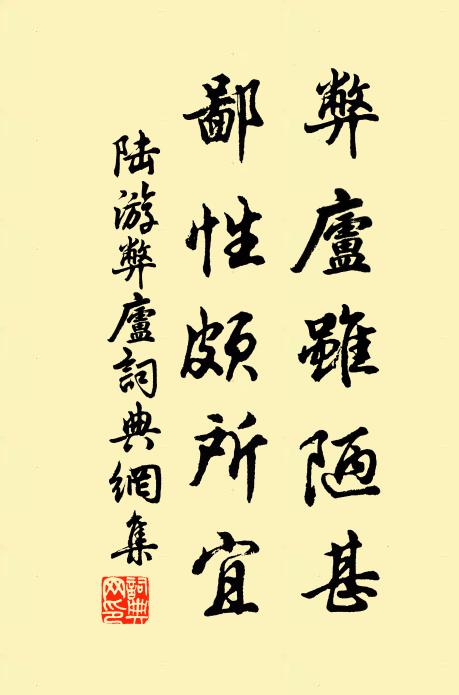 弊廬雖陋甚
鄙性頗所宜
陸游弊廬詞典網集
詞典
网印